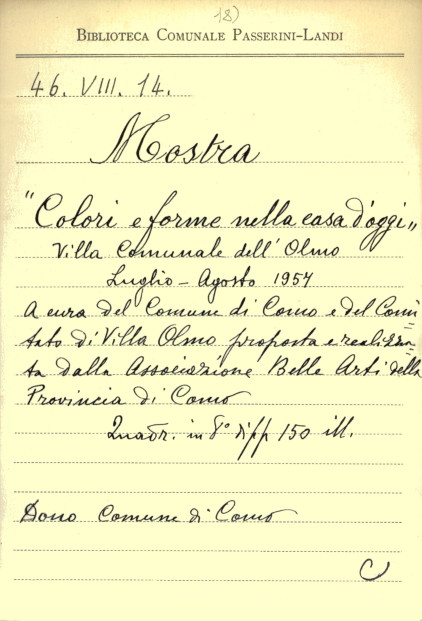 18)
BIBLIOTECA COMUNALE PASSERINI-LANDI
46. VIII. 14.
Mostra
"Colori e forme nella casa d'oggi„
Villa Comunale dell'Olmo
Luglio - Agosto 1957
A cura del Comune di Como e del Comi=
tato di Villa Olmo proposta e realizza=
ta dalla Associazione Belle Arti della
Provincia di Como
Quadr. in 8° di pp 150 ill.
Dono Comune di Como
C